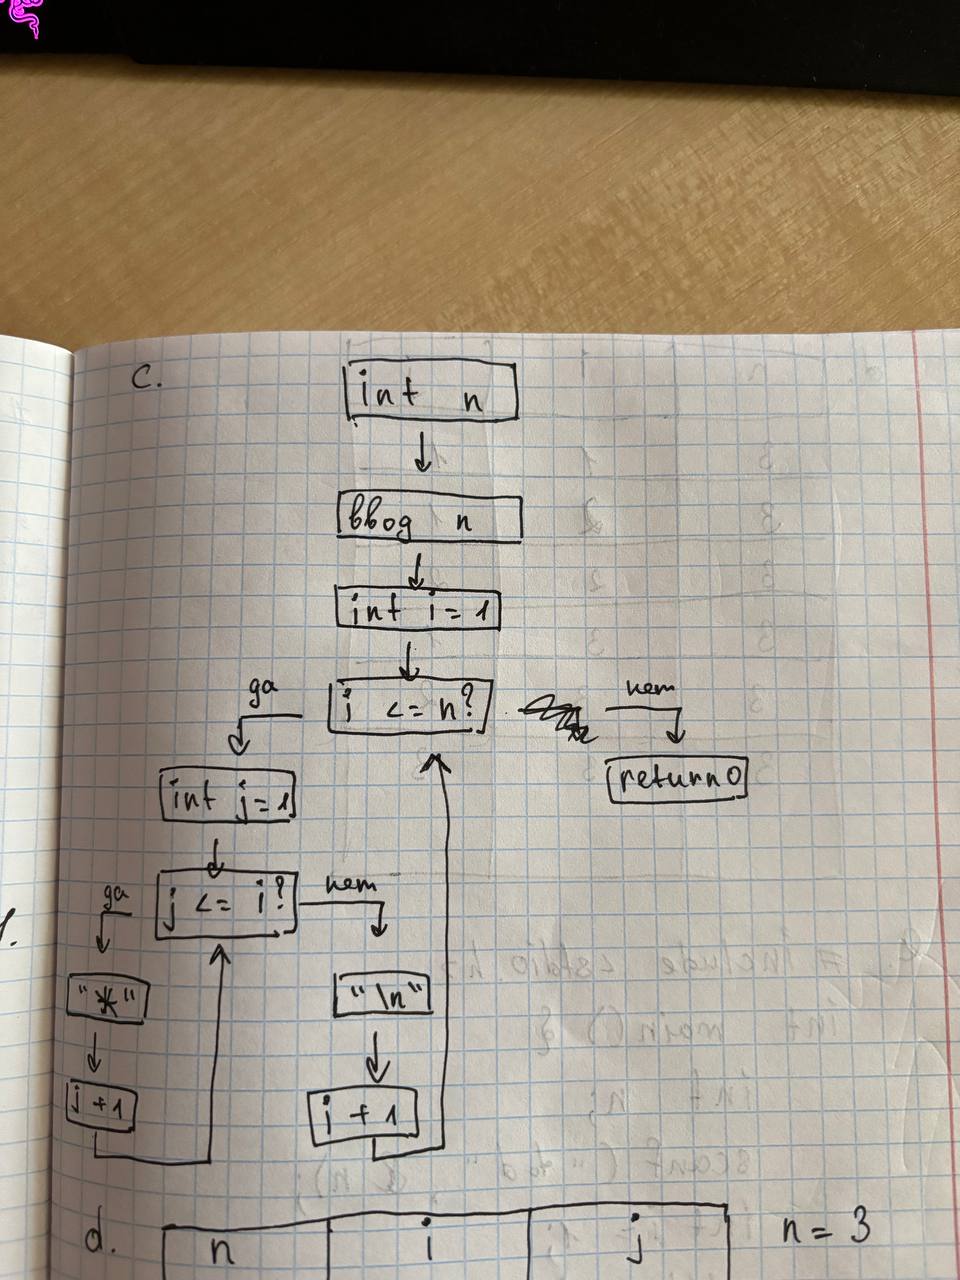 c.
int n
ввод n
int i = 1
i <= n?
да
нет
return 0
int j = 1
j <= i?
да
нет
"*"
"\n"
j + 1
i + 1
1.
d.
n
i
j
n = 3